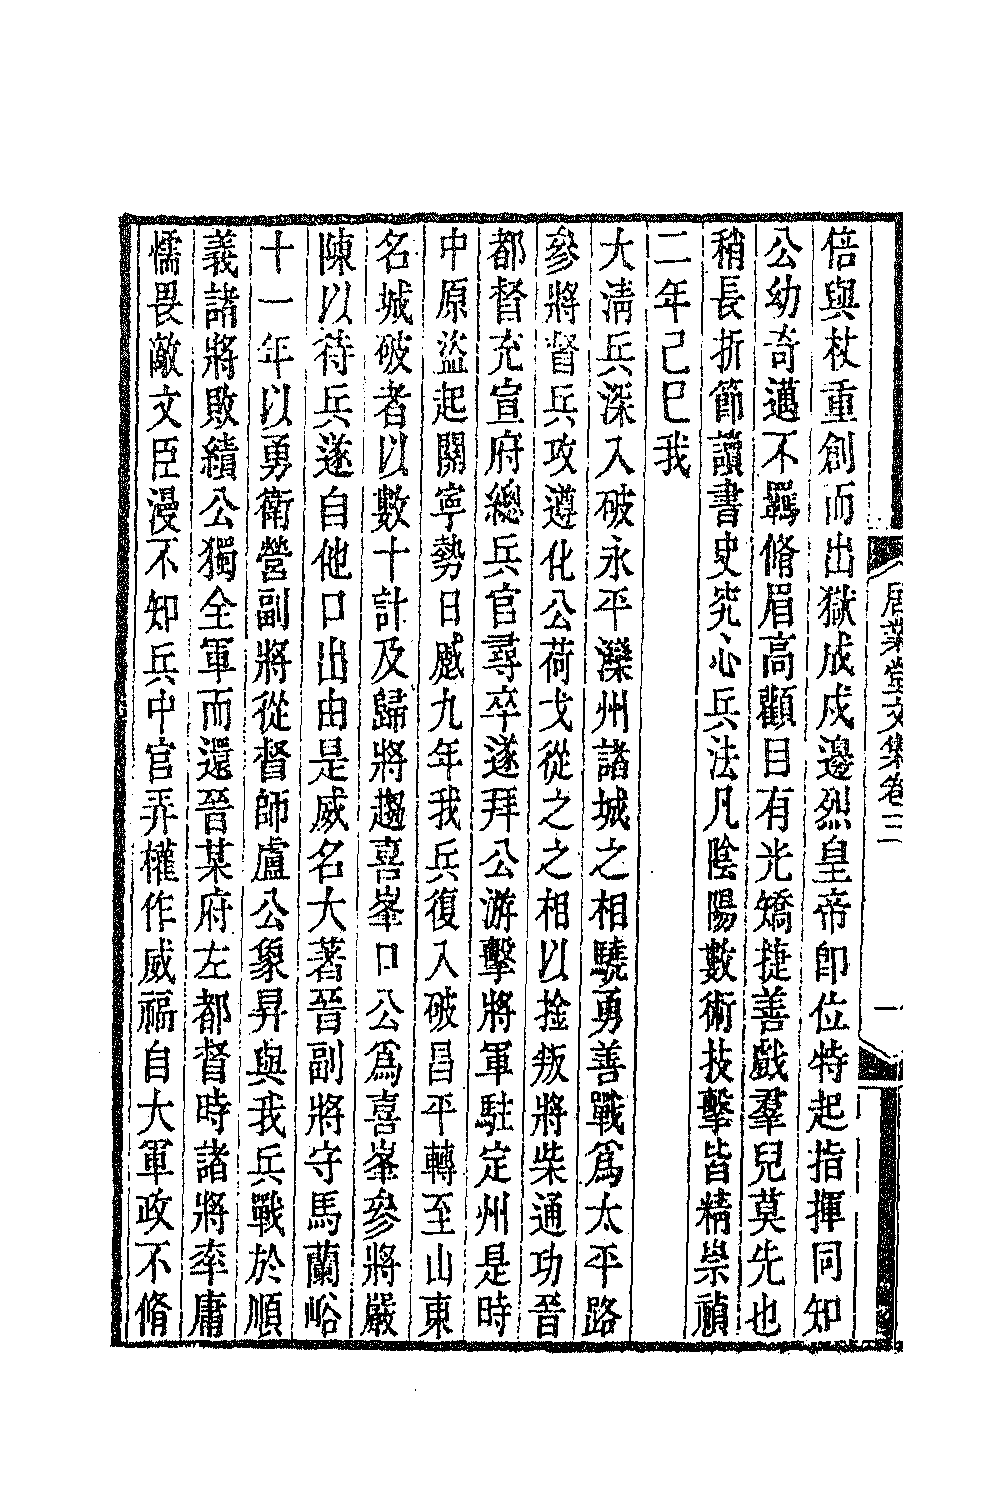 倍與杖重創而出獄成戍邊烈皇帝卽位特起指揮同知
公幼奇邁不羈脩眉高顴目有光矯捷善戲羣兒莫先也
稍長折節讀書史究心兵法凡陰陽數術技擊皆精崇禎
二年己巳我
大淸兵深入破永平灤州諸城之相驍勇善戰爲太平路
參將督兵攻遵化公荷戈從之之相以捡叛將柴通功晉
都督充宣府總兵官尋卒遂拜公游擊將軍駐定州是時
中原盜起關寧勢日蹙九年我兵復入破昌平轉至山東
名城破者以數十計及歸將趨喜峯口公爲喜峯參將嚴
陳以待兵遂自他口出由是威名大著晉副將守馬蘭峪
十一年以勇衛營副將從督師盧公象昇與我兵戰於順
義諸將敗績公獨全軍而還晉某府左都督時諸將率庸
懦畏敵文臣漫不知兵中官弄權作威福自大軍政不脩
居業堂文集卷三
一